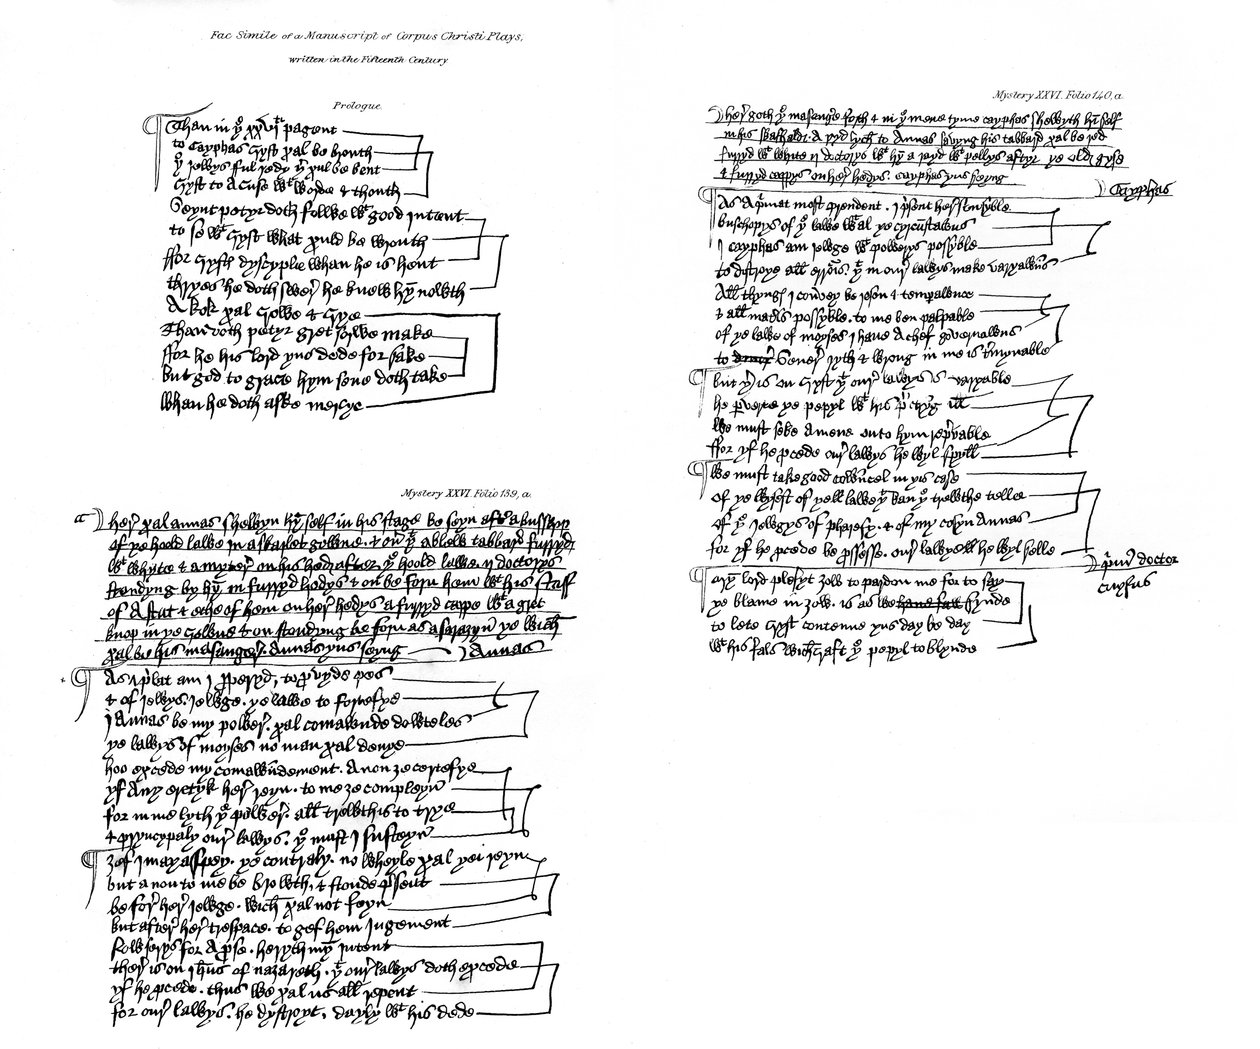 Fac Simile of a Manuscript of Corpus Christi Plays,
written in the Fifteenth Century
Prologue.
Than in þe xxvi pagent
to cayphas cryst xal be brouth
þe jewys ful redy þer xul be bent
cryst to acuse wt worde & thouth
Seynt petyr doth folwe wt good intent
to se wt cryst what xuld be wrouth
ffor crystys dyscyple whan he is hent
thryes he doth swere he knew hym nowth
A kok xal crowe & crye
Than doth petyr gret sorwe make
ffor he his lord þus dede for sake
but god to grace hym sone doth take
whan he doth aske mercye
Mystery XXVI. Folio 139, a.
her xal annas shewyn hym self in his stage be seyn after a busshop
of þe hoold lawe in a skarlet gowne & ouyr þt a blew tabbard furryd
wt whyte & a mytere on his hed after þe hoold lawe ij doctorys
stondyng by hym in furryd hodys & on be forn hem wt his staff
of A stat & eche of hem on here hedys a furryd cappe wt a gret
knop in þe crowne & on stondyng be forn as a sarazyn þe wich
xal be his masangere. Annas þus seyng
Annas
As a prelat am I properyd, to provyde pes
& of jewys jewge. þe lawe to fortefye
I Annas be my powere xal comawnde dowteles
þe lawys of moyses no man xal denye
hoo excede my comawndement. Anon ȝe certefye
yf Any eretyk here reyn. to me ȝe compleyn
for in me lyth þe powere. all trewthis to trye
& pryncypaly oure lawys. þo must I susteyn
ȝef I may aspey. þe contrary. no wheyle xal þei reyn
but a non to me be browth, & stonde present
be fore here jewge. wich xal not feyn
but aftere here trespace. to gef hem jugement
Now serys for A prose. heryth myn intent
there is on ihus of nazareth. þt oure lawys doth excede
yf he procede thus we xal us all repent
for oure lawys. he dystroyt, dayly wt his dede
Mystery XXVI. Folio 140, a.
here goth þe masangere forth & in þe mene tyme cayphas shewyth hym self
in his skafhald. A ryd lych to Annas savyng his tabbard xal be red
furryd wt white ij doctorys wt hym a rayd wt pellys aftyr þe old gyse
& furryd cappys on here hedys. cayphas þus seyng
Cayphas
As A primat most prudent. I present here sensyble
buschopys of þe lawe wt al þe cyrcumstawns
I cayphas am jewge wt powerys possyble
to distroye all errouris. þt in oure lawys make varyawns
All thyngs I convey be reson & temperawnce
& all materis possyble. to me ben palpable
of þe lawe of moyses I have A chef governawns
to Severe ryth & wrong in me is termynable
but þer is on cryst þt oure lawys is varyable
he perverte þe pepyl wt his prechyng ill
We must seke a mene onto hym reprevable
ffor yf he procede oure lawys he wyl spyll
We must take good cowncel in þis case
of þe wysest of þe lawe þt kan þe trewthe telle
of þe jewgys of pharasy. & of my cosyn Annas
for yf he procede be prossesse. oure lawys he wyl felle
primus doctor
cayfas
Myn lord plesyt ȝow to pardon me for to sey
þe blame in ȝow. is as we fynde
to lete cryst contenne þus day be day
wt his fals wichcraft þe pepyl to blynde